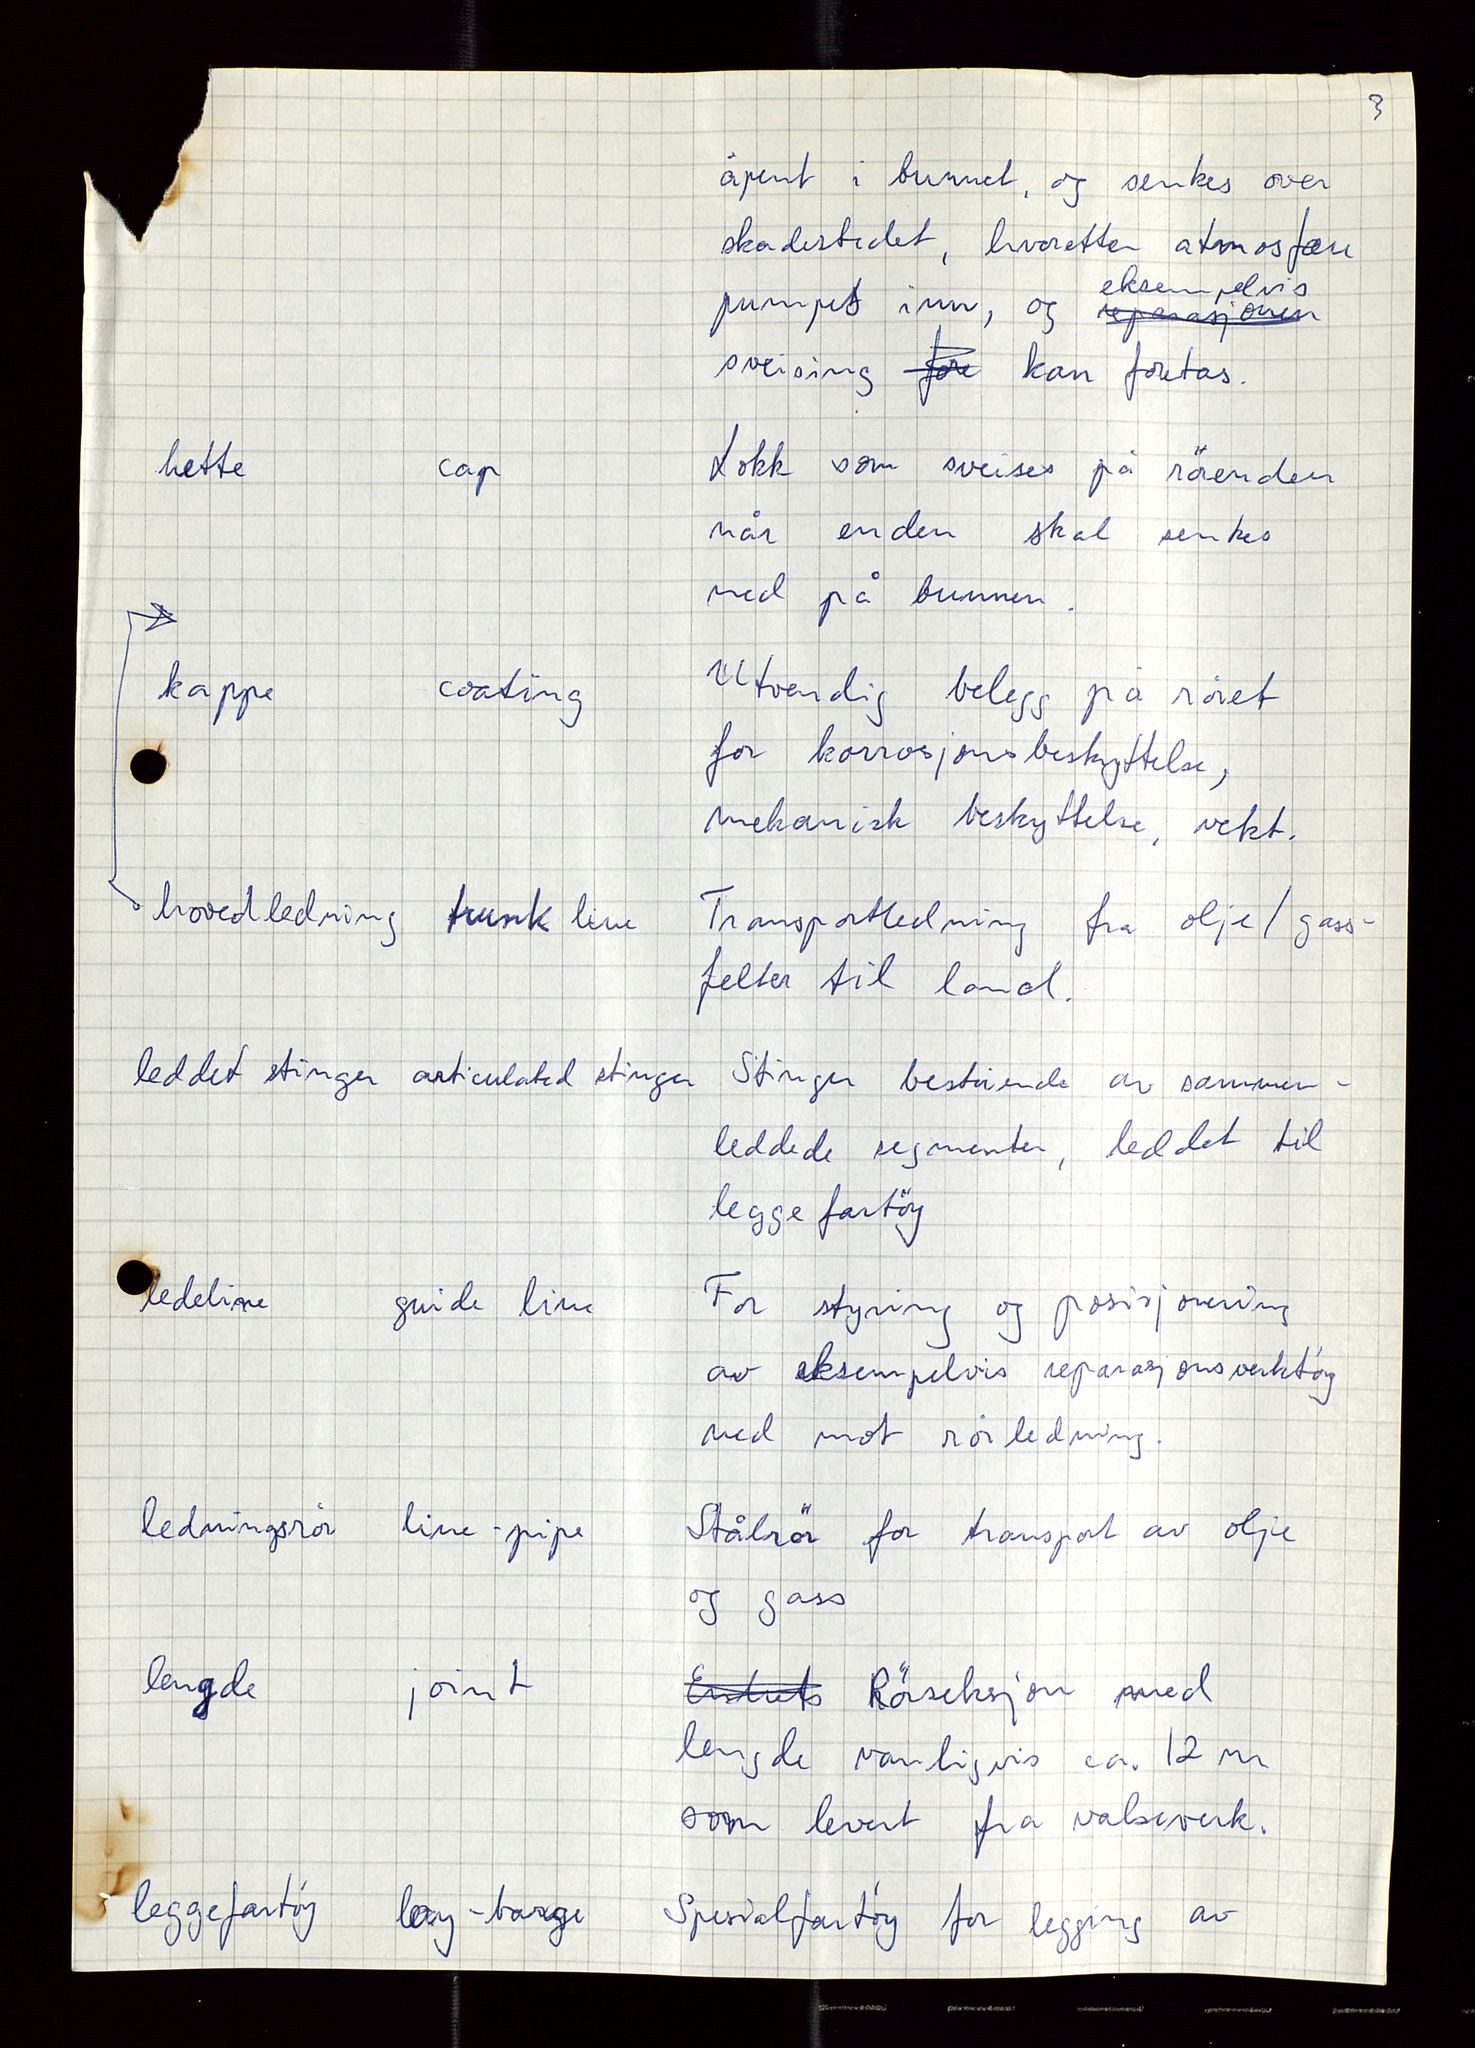 3
åpent i bunnet, og senkes over
skadestedet, hvoretter atmosfære
pumpes inn, og eksempelvis
reparasjonen
sveising fore kan foretas.
hette cap Lokk som sveises på rörenden
når enden skal senkes
ned på bunnen.
kappe coating Utvendig belegg på röret
for korrosjonsbeskyttelse,
mekanisk beskyttelse, vekt.
hovedledning trunk line Transportledning fra olje/gass-
felter til land.
leddet stinger articulated stinger Stinger bestående av sammen-
leddede segmenter, leddet til
leggefartöy
ledeline guide line For styring og posisjonering
av eksempelvis reparasjonsverktöy
ned mot rörledning.
ledningsrör line-pipe Stålrör for transport av olje
og gass
lengde joint Rörseksjon med
lengde vanligvis ca. 12 m
som levert fra valseverk.
leggefartöy lay-barge Spesialfartöy for legging av